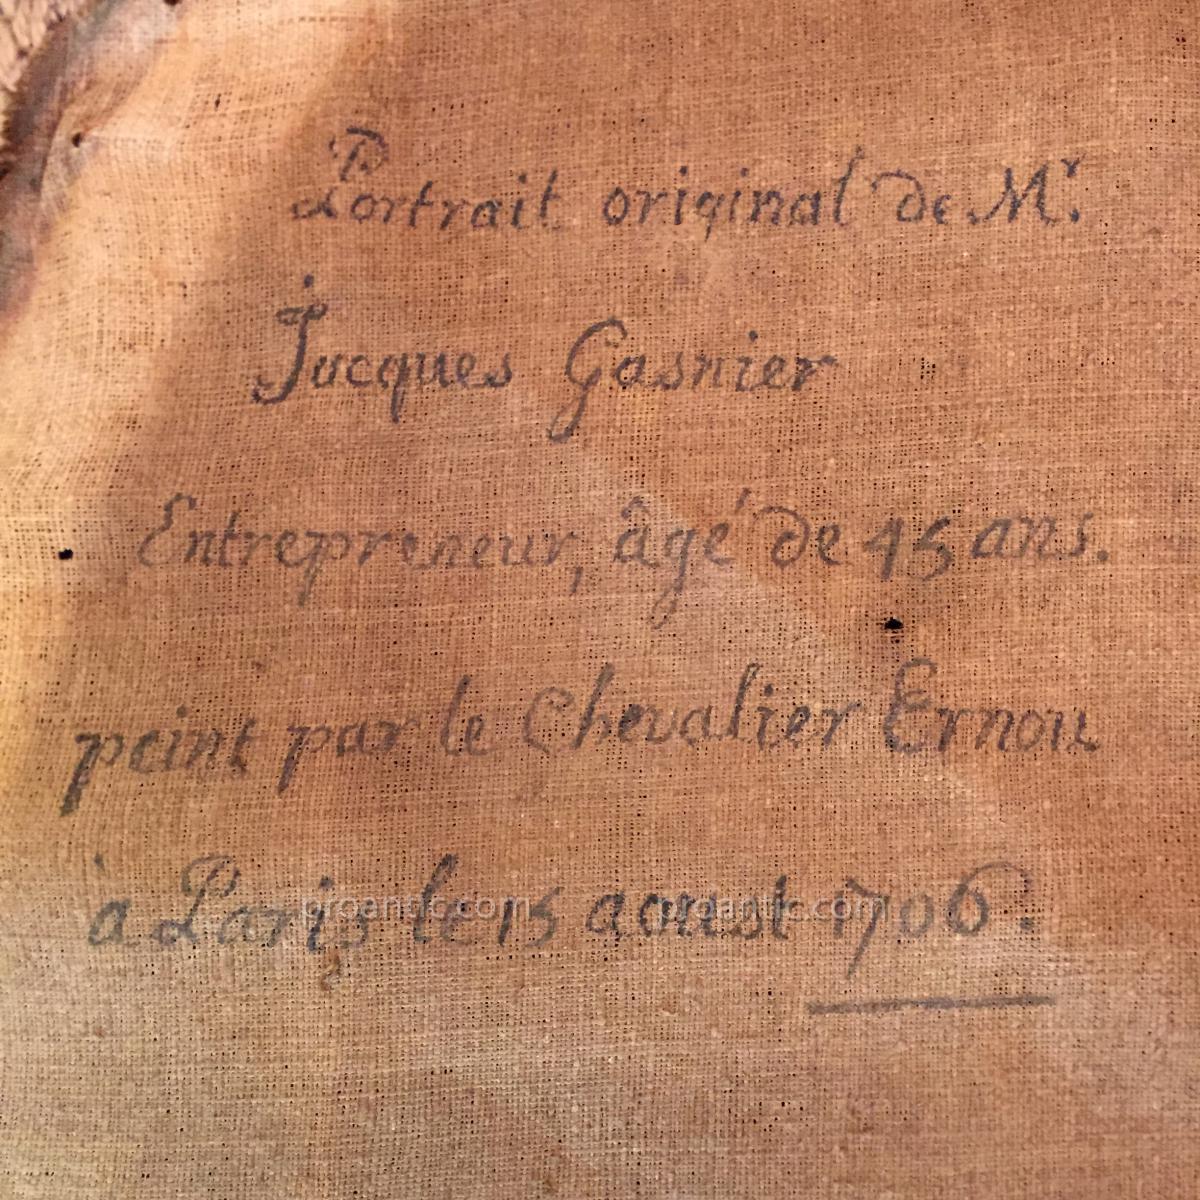 Portrait original de Mr.
Jacques Gasnier
Entrepreneur, âgé de 45 ans.
peint par le Chevalier Ernou
à Paris le 15 aoust 1706.
proantic.com proantic.com